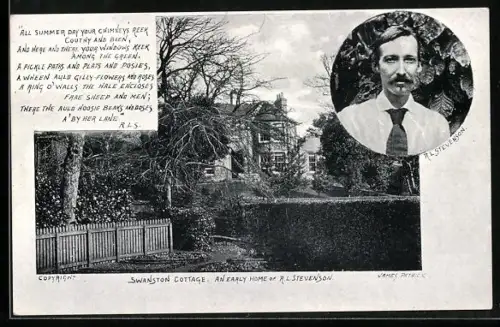 "ALL SUMMER DAY YOUR CHIMNEYS REEK
COUTHY AND BIEN;
AND HERE AND THERE YOUR WINDOWS KEEK
AMONG THE GREEN.
A PICKLE PATHS AND PLATS AND POSIES,
A WHEEN AULD GILLY-FLOWERS AND ROSES
A RING O' WALLS THE HALE ENCLOSES
FRAE SHEEP AND MEN;
THERE THE AULD HOOSIE BEEKS AND DOSES
A' BY HER LANE"
R.L.S.
R L STEVENSON.
COPYRIGHT
SWANSTON COTTAGE. AN EARLY HOME OF R.L STEVENSON.
JAMES PATRICK